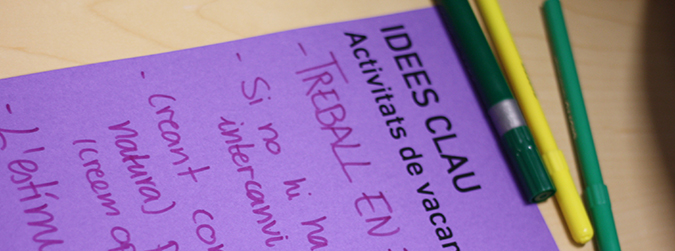 IDEES CLAU
Activitats de
- TREBALL EN
- Si no hi ha
intercanvi
- Creant
natura)
(creem
- L'estímu